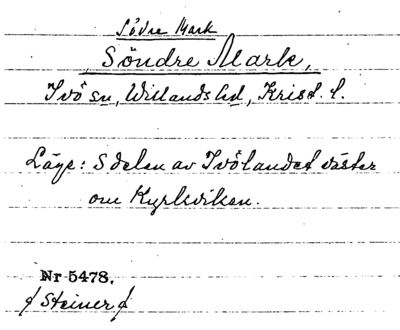 Södre Mark
Söndre Mark,
Ivö sn, Willands hd, Krist. l.
Läge: S delen av Ivölandet väster
om Kyrkviken.
Nr 5478.
∮ Steiner ∮